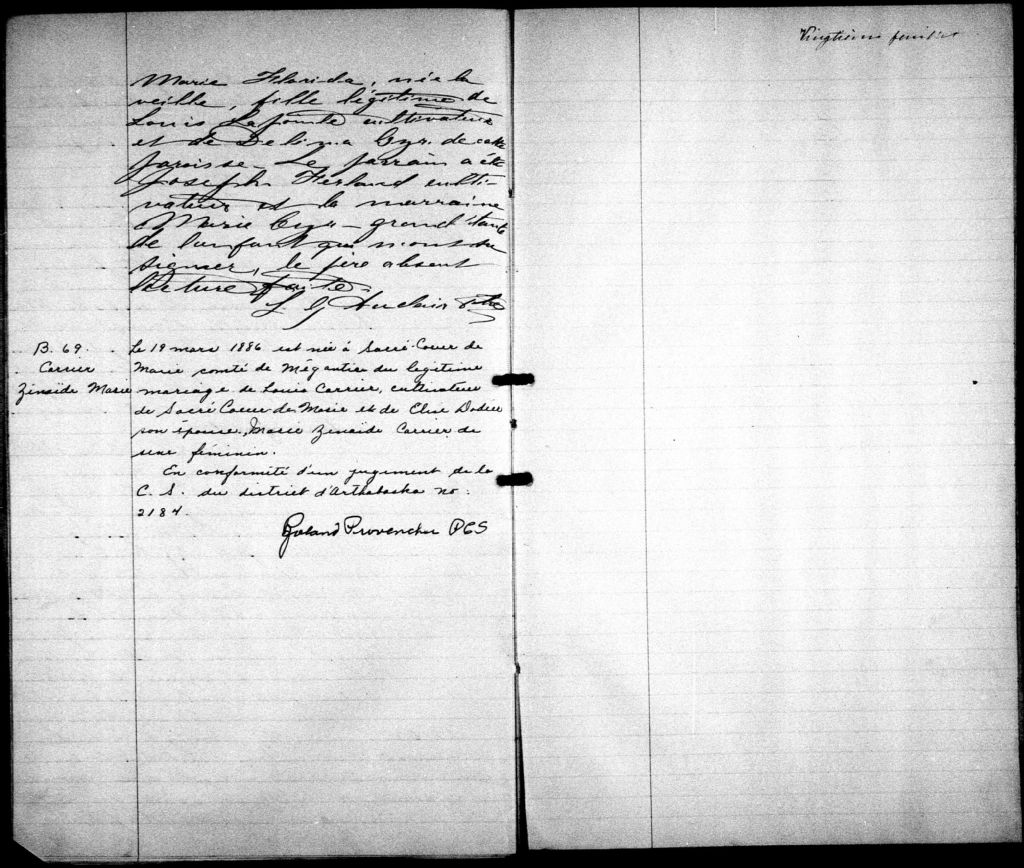 Marie Florida, née la
veille, fille légitime de
Louis Lapointe cultivateur
et de Delina Cyr. de cette
paroisse - Le parrain a été
Joseph Ferland culti-
vateur et la marraine
Marie Cyr - grand'tante
de l'enfant qui n'ont su
signer, le père absent
Lecture faite.
L. G. Auclair Ptre
B. 69.
Carrier
Zénaïde Marie
Le 19 mars 1886 est née à Sacré-Coeur de
Marie comté de Mégantic du légitime
mariage de Louis Carrier, cultivateur
de Sacré Coeur de Marie et de Elise Dodier
son épouse, Marie Zénaïde Carrier de
sexe féminin.
En conformité d'un jugement de la
C. S. du district d'Arthabaska no.
2184.
Roland Provencher PCS
Vingtième feuillet